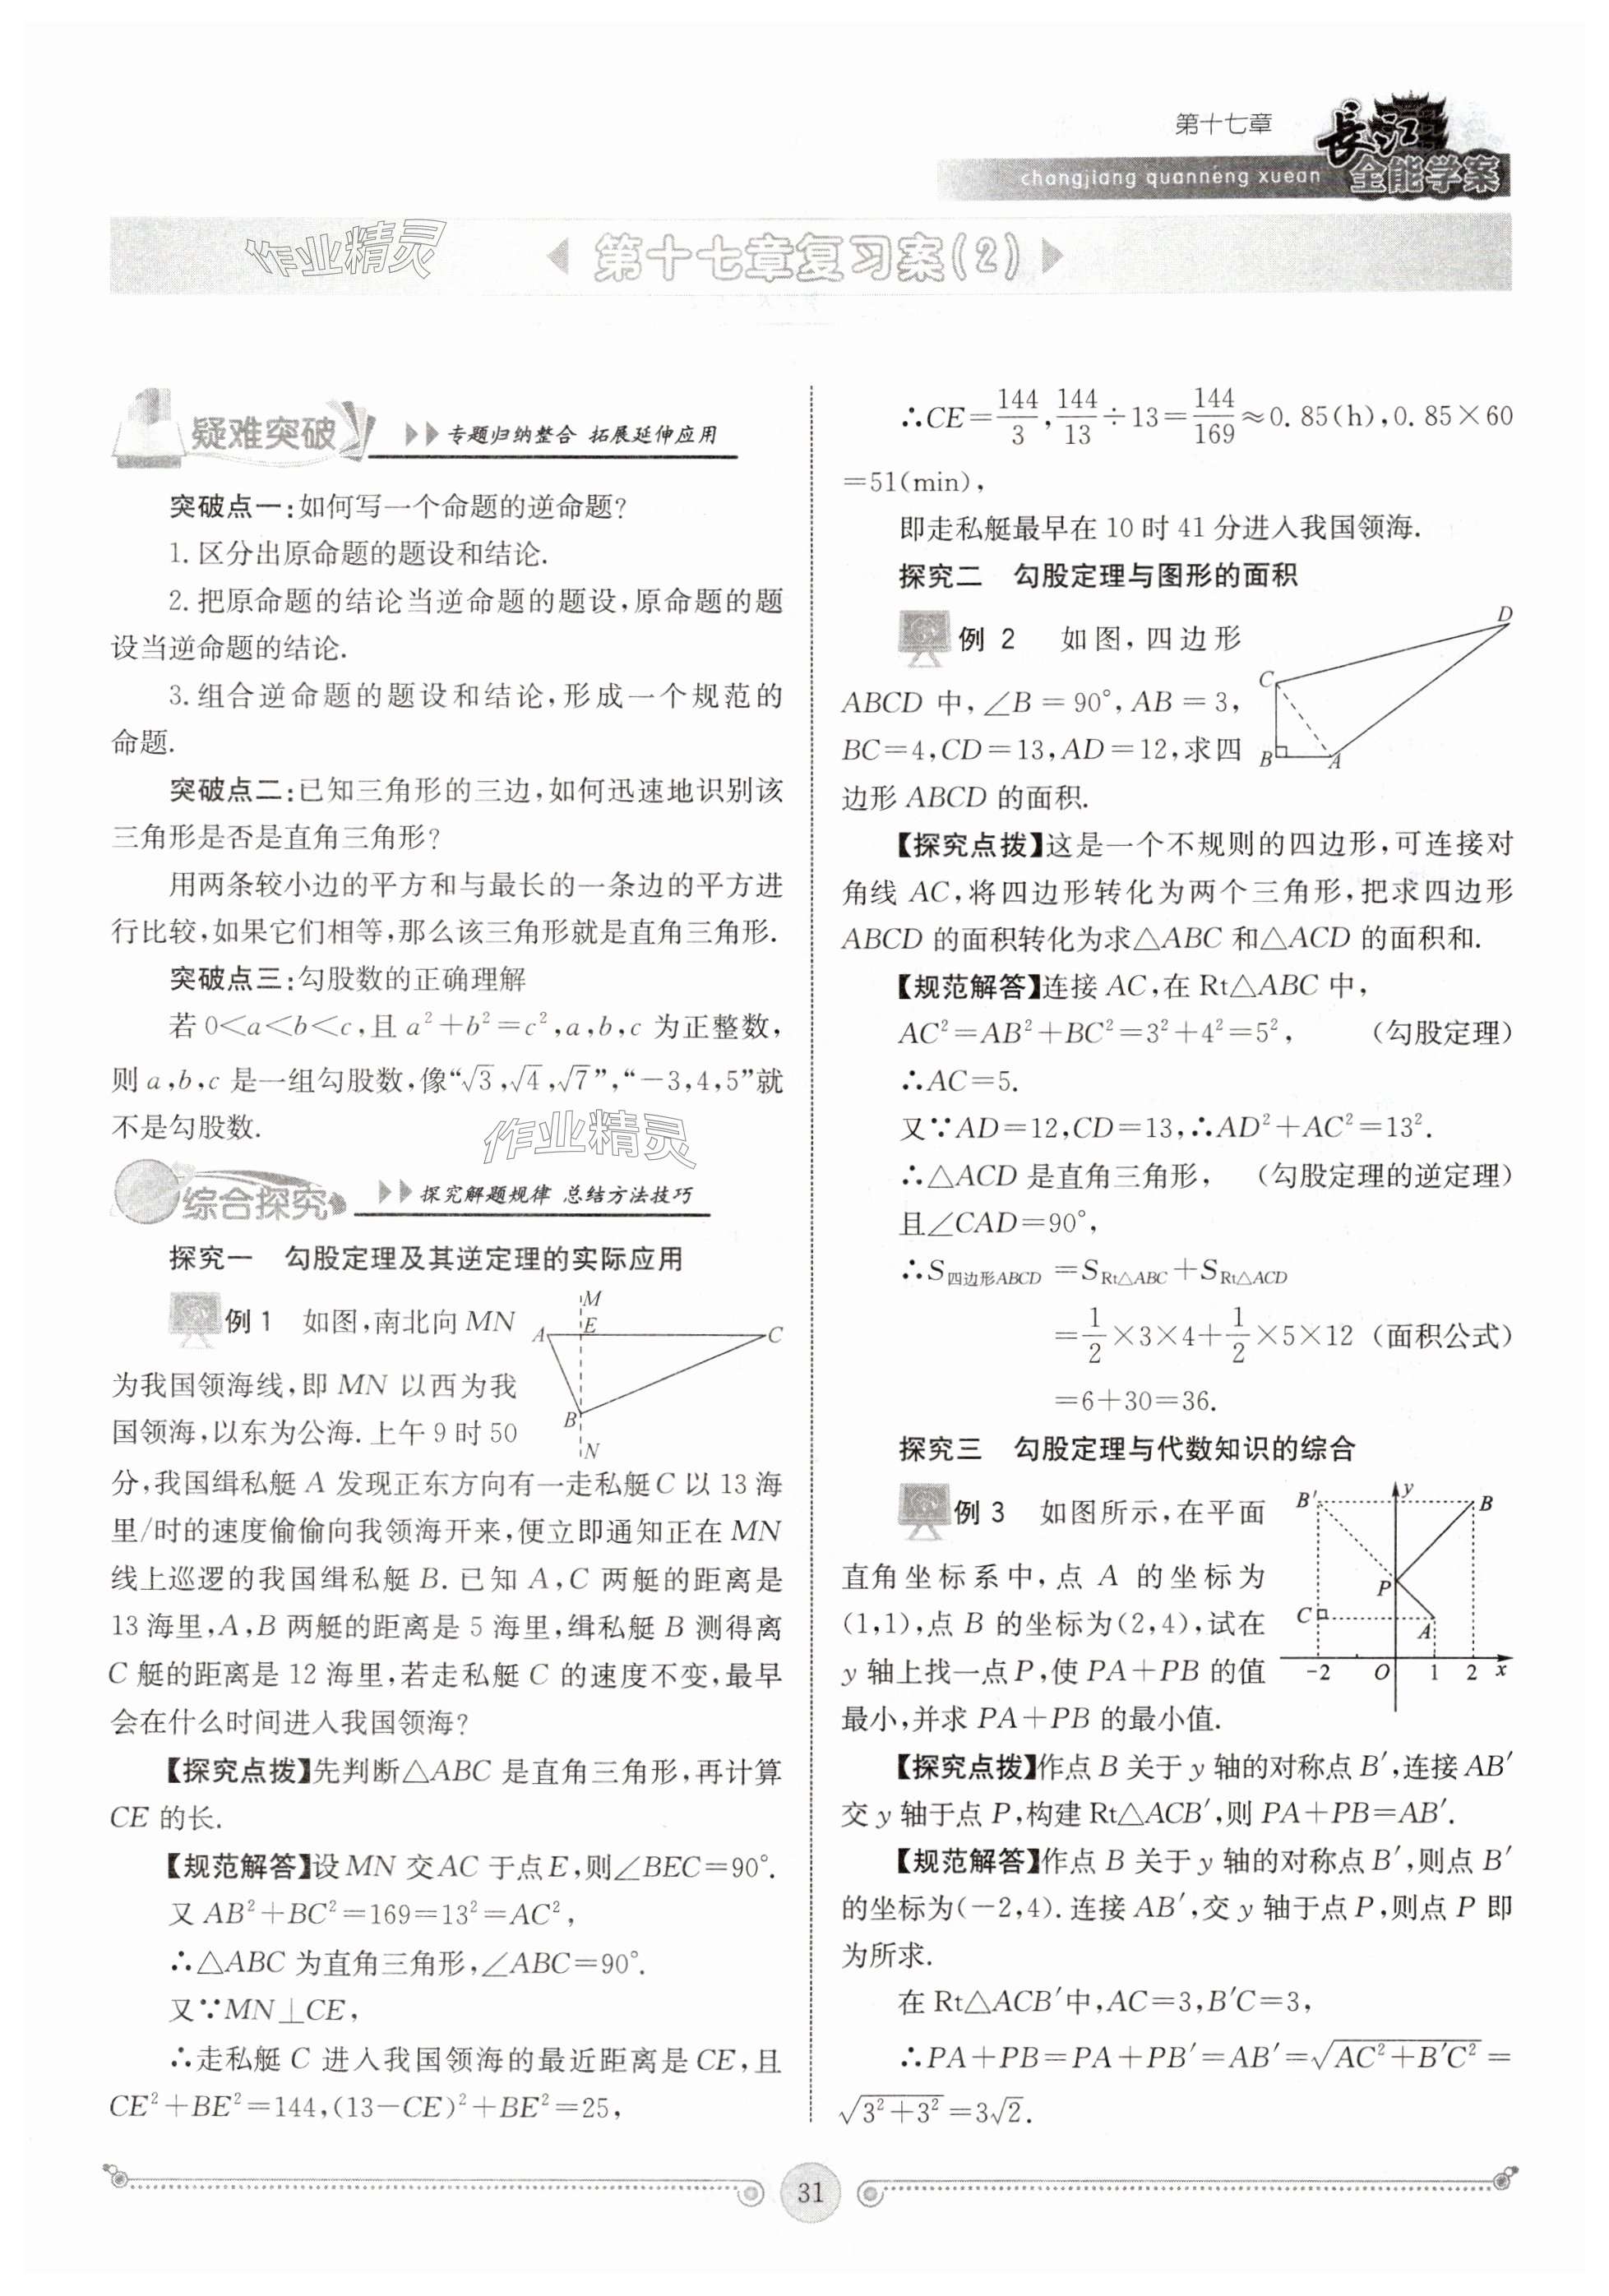 第十七章
长江
全能学案
changjiang quanneng xuean
作业精灵
第十七章复习案(2)
疑难突破 专题归纳整合 拓展延伸应用
突破点一:如何写一个命题的逆命题?
1. 区分出原命题的题设和结论.
2. 把原命题的结论当逆命题的题设,原命题的题
设当逆命题的结论.
3. 组合逆命题的题设和结论,形成一个规范的
命题.
突破点二:已知三角形的三边,如何迅速地识别该
三角形是否是直角三角形?
用两条较小边的平方和与最长的一条边的平方进
行比较,如果它们相等,那么该三角形就是直角三角形.
突破点三:勾股数的正确理解
若 0<a<b<c,且 a²+b²=c²,a,b,c 为正整数,
则 a,b,c 是一组勾股数,像“√3,√4,√7”,“−3,4,5”就
不是勾股数.
作业精灵
综合探究 探究解题规律 总结方法技巧
探究一 勾股定理及其逆定理的实际应用
例 1 如图,南北向 MN
为我国领海线,即 MN 以西为我
国领海,以东为公海. 上午 9 时 50
M
A E C
B
N
分,我国缉私艇 A 发现正东方向有一走私艇 C 以 13 海
里/时的速度偷偷向我领海开来,便立即通知正在 MN
线上巡逻的我国缉私艇 B. 已知 A,C 两艇的距离是
13 海里,A,B 两艇的距离是 5 海里,缉私艇 B 测得离
C 艇的距离是 12 海里,若走私艇 C 的速度不变,最早
会在什么时间进入我国领海?
【探究点拨】先判断△ABC 是直角三角形,再计算
CE 的长.
【规范解答】设 MN 交 AC 于点 E,则∠BEC=90°.
又 AB²+BC²=169=13²=AC²,
∴△ABC 为直角三角形,∠ABC=90°.
又∵MN⊥CE,
∴走私艇 C 进入我国领海的最近距离是 CE,且
CE²+BE²=144,(13−CE)²+BE²=25,
∴CE=144/3,144/13÷13=144/169≈0. 85(h),0. 85×60
=51(min),
即走私艇最早在 10 时 41 分进入我国领海.
探究二 勾股定理与图形的面积
例 2 如图,四边形
ABCD 中,∠B = 90°,AB = 3,
BC=4,CD=13,AD=12,求四
边形 ABCD 的面积.
D
C
B A
【探究点拨】这是一个不规则的四边形,可连接对
角线 AC,将四边形转化为两个三角形,把求四边形
ABCD 的面积转化为求△ABC 和△ACD 的面积和.
【规范解答】连接 AC,在 Rt△ABC 中,
AC²=AB²+BC²=3²+4²=5², (勾股定理)
∴AC=5.
又∵AD=12,CD=13,∴AD²+AC²=13².
∴△ACD 是直角三角形, (勾股定理的逆定理)
且∠CAD=90°,
∴S四边形ABCD =SRt△ABC+SRt△ACD
=1/2×3×4+1/2×5×12 (面积公式)
=6+30=36.
探究三 勾股定理与代数知识的综合
例 3 如图所示,在平面
直角坐标系中,点 A 的坐标为
(1,1),点 B 的坐标为(2,4),试在
y 轴上找一点 P,使 PA+PB 的值
最小,并求 PA+PB 的最小值.
B′ y B
P
C A
−2 O 1 2 x
【探究点拨】作点 B 关于 y 轴的对称点 B′,连接 AB′
交 y 轴于点 P,构建 Rt△ACB′,则 PA+PB=AB′.
【规范解答】作点 B 关于 y 轴的对称点 B′,则点 B′
的坐标为(−2,4). 连接 AB′,交 y 轴于点 P,则点 P 即
为所求.
在 Rt△ACB′中,AC=3,B′C=3,
∴PA+PB=PA+PB′=AB′=√(AC²+B′C²) =
√(3²+3²) =3√2.
31